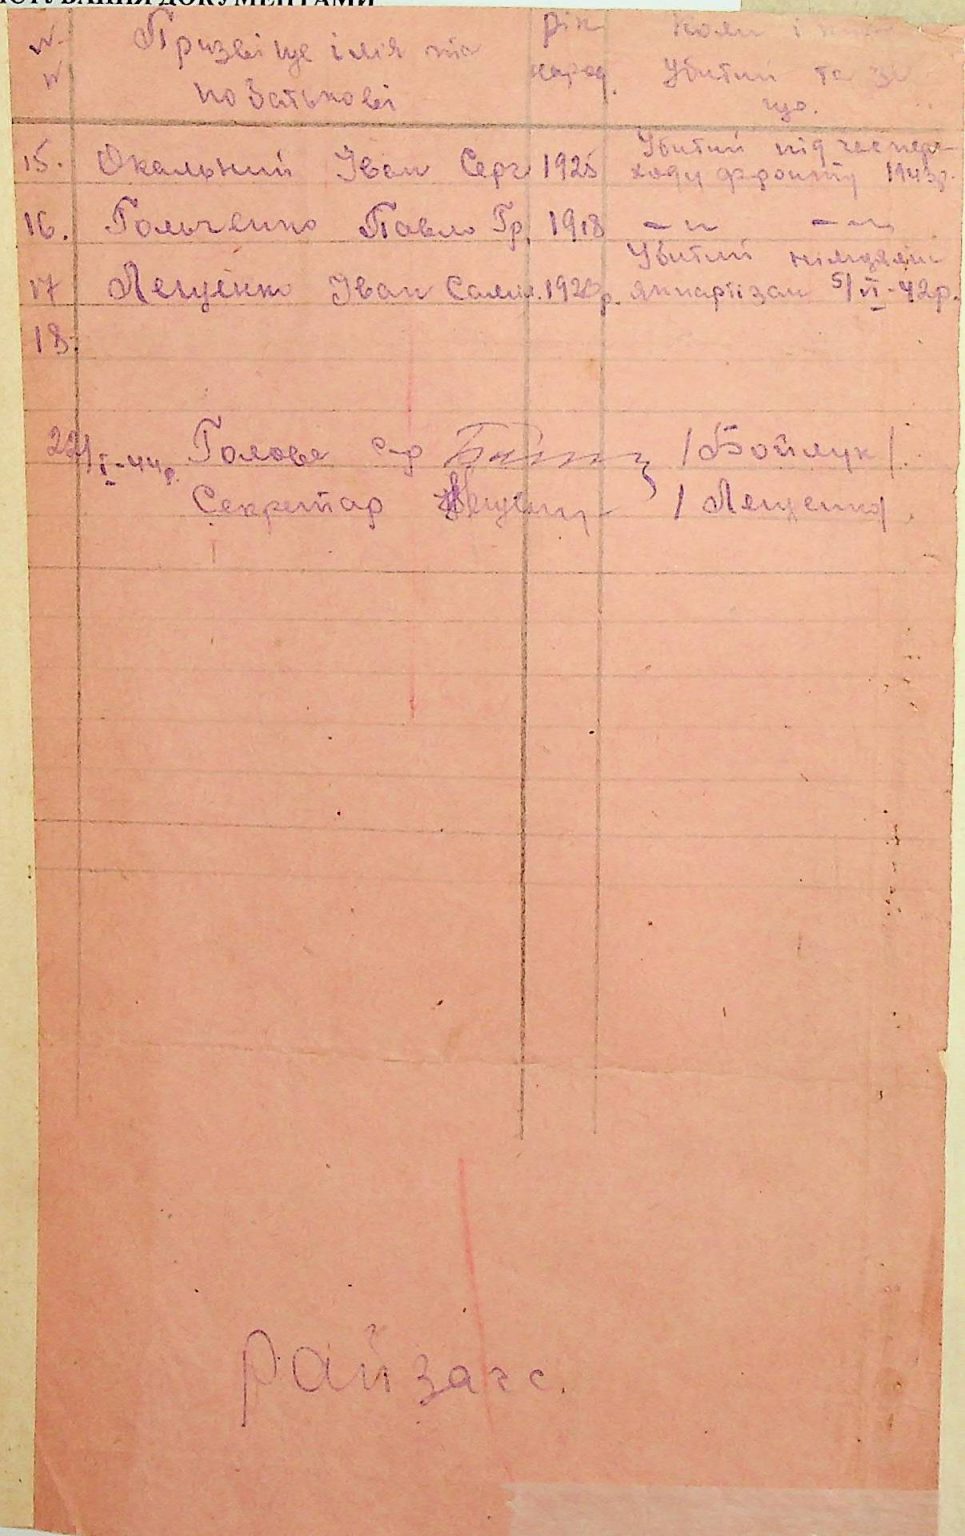 КОРИСТУВАННЯ ДОКУМЕНТАМИ
№ Призвіще імя та рік Коли і ким
№ по батькові народ. Убитий та за
що.
15. Окальний Іван Серг. 1925 Убитий під час пере-
ходу фронту 1943р.
16. Гольченко Павло Гр. 1918 — „ — „
17 Лещенко Іван 192 р. Убитий німцями
як партізан 5/VI-42р.
18.
22/I-44р. Голова с-р /Бойлук/
Секретар Лещенко /Лещенко/
Райзагс.